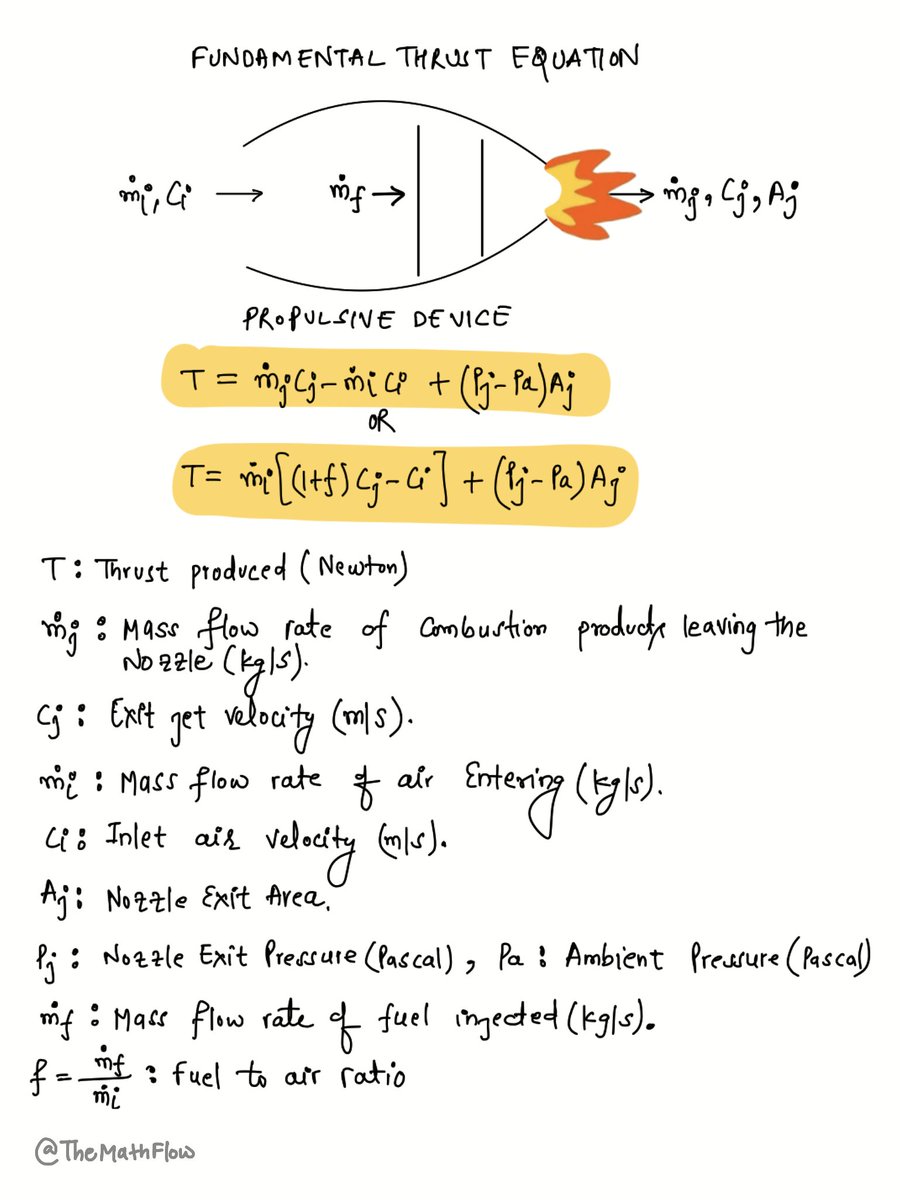 FUNDAMENTAL THRUST EQUATION
ṁi, Ci → ṁf → → ṁj, Cj, Aj
PROPULSIVE DEVICE
T = ṁjCj - ṁiCi + (Pj - Pa)Aj
OR
T = ṁi[(1+f)Cj - Ci] + (Pj - Pa)Aj
T : Thrust produced (Newton)
ṁj : Mass flow rate of Combustion products leaving the
Nozzle (kg/s).
Cj : Exit get velocity (m/s).
ṁi : Mass flow rate of air Entering (kg/s).
Ci : Inlet air velocity (m/s).
Aj : Nozzle Exit Area.
Pj : Nozzle Exit Pressure (Pascal), Pa : Ambient Pressure (Pascal)
ṁf : Mass flow rate of fuel injected (kg/s).
f = ṁf/ṁi : fuel to air ratio
@TheMathFlow